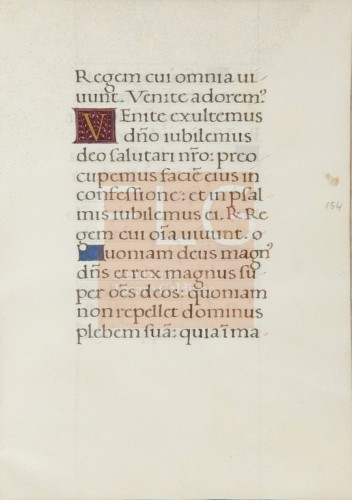 Regem cui omnia ui
uunt. Venite adorem?
VEnite exultemus
dño iubilemus
deo salutari nr̃o: preo
cupemus faciẽ eius in
confessione: et in psal
mis iubilemus ei. R. Re
gem cui oĩa uiuunt. o
uoniam deus magn?
dñs et rex magnus su
per oẽs deos: quoniam
non repellet dominus
plebem suã: quia ĩ ma
154
LG